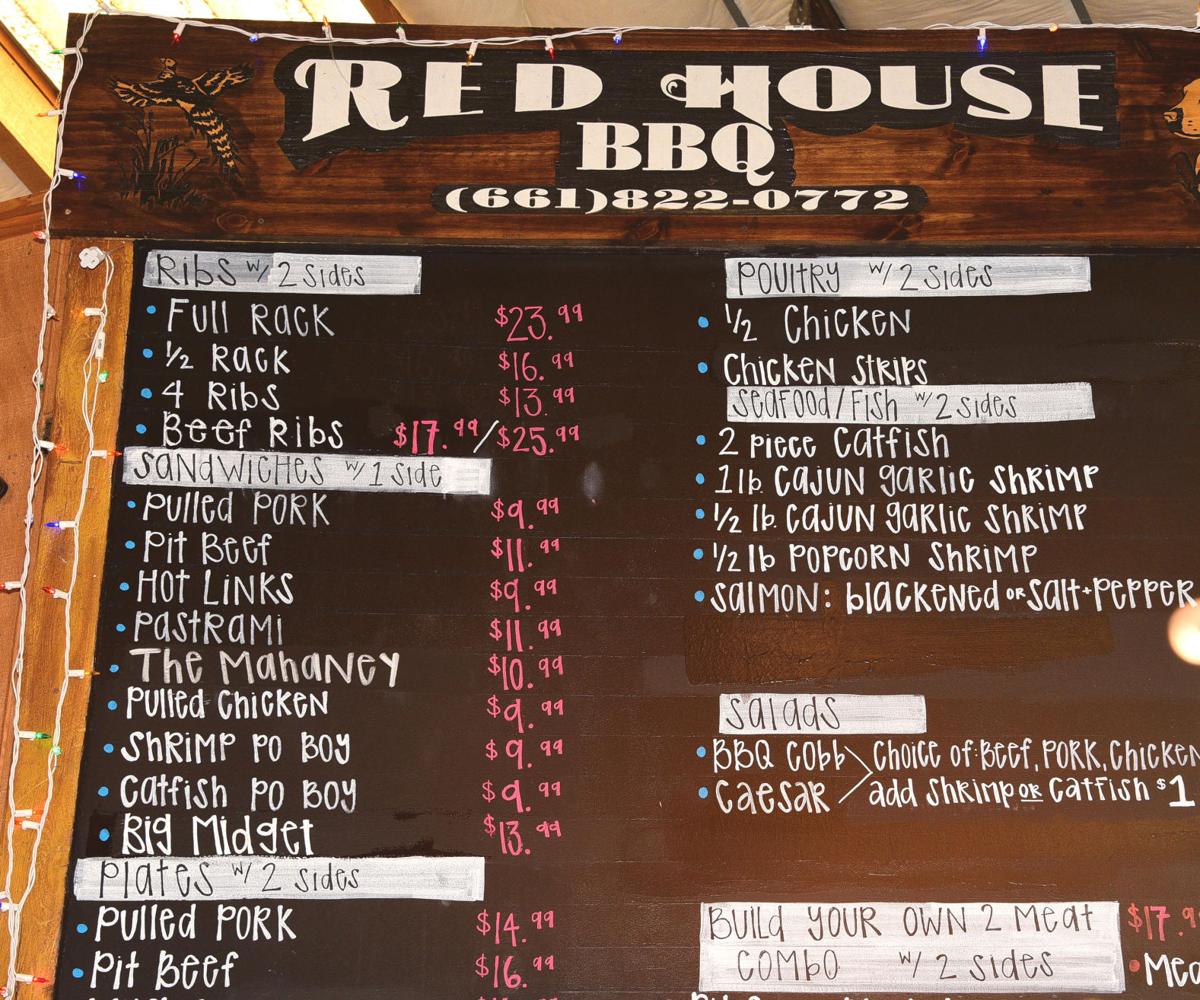 RED HOUSE
BBQ
(661)822-0772
Ribs w/ 2 sides
Full Rack $23.99
1/2 Rack $16.99
4 Ribs $13.99
Beef Ribs $17.99/$25.99
Sandwiches w/ 1 side
Pulled Pork $9.99
Pit Beef $11.99
Hot Links $9.99
Pastrami $11.99
The Mahaney $10.99
Pulled Chicken $9.99
Shrimp Po Boy $9.99
Catfish Po Boy $9.99
Big Midget $13.99
Plates w/ 2 sides
Pulled Pork $14.99
Pit Beef $16.99
Poultry w/ 2 sides
1/2 Chicken
Chicken Strips
Seafood/Fish w/ 2 sides
2 piece Catfish
1 lb. Cajun garlic shrimp
1/2 lb. Cajun garlic shrimp
1/2 lb popcorn shrimp
Salmon: blackened or Salt+Pepper
Salads
BBQ Cobb > Choice of: Beef, Pork, Chicken
Caesar add shrimp or Catfish $1
Build your own 2 Meat $17.9
Combo w/ 2 sides